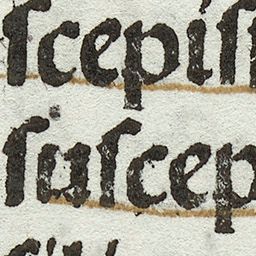 ſcepiſ
ſuſcep